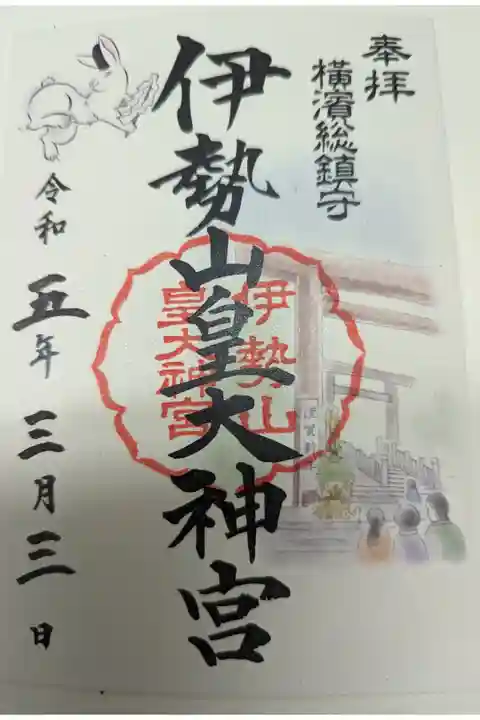 奉拝
横濱総鎮守
伊勢山皇大神宮
伊勢山
皇大神宮
謹賀新年
令和五年三月三日